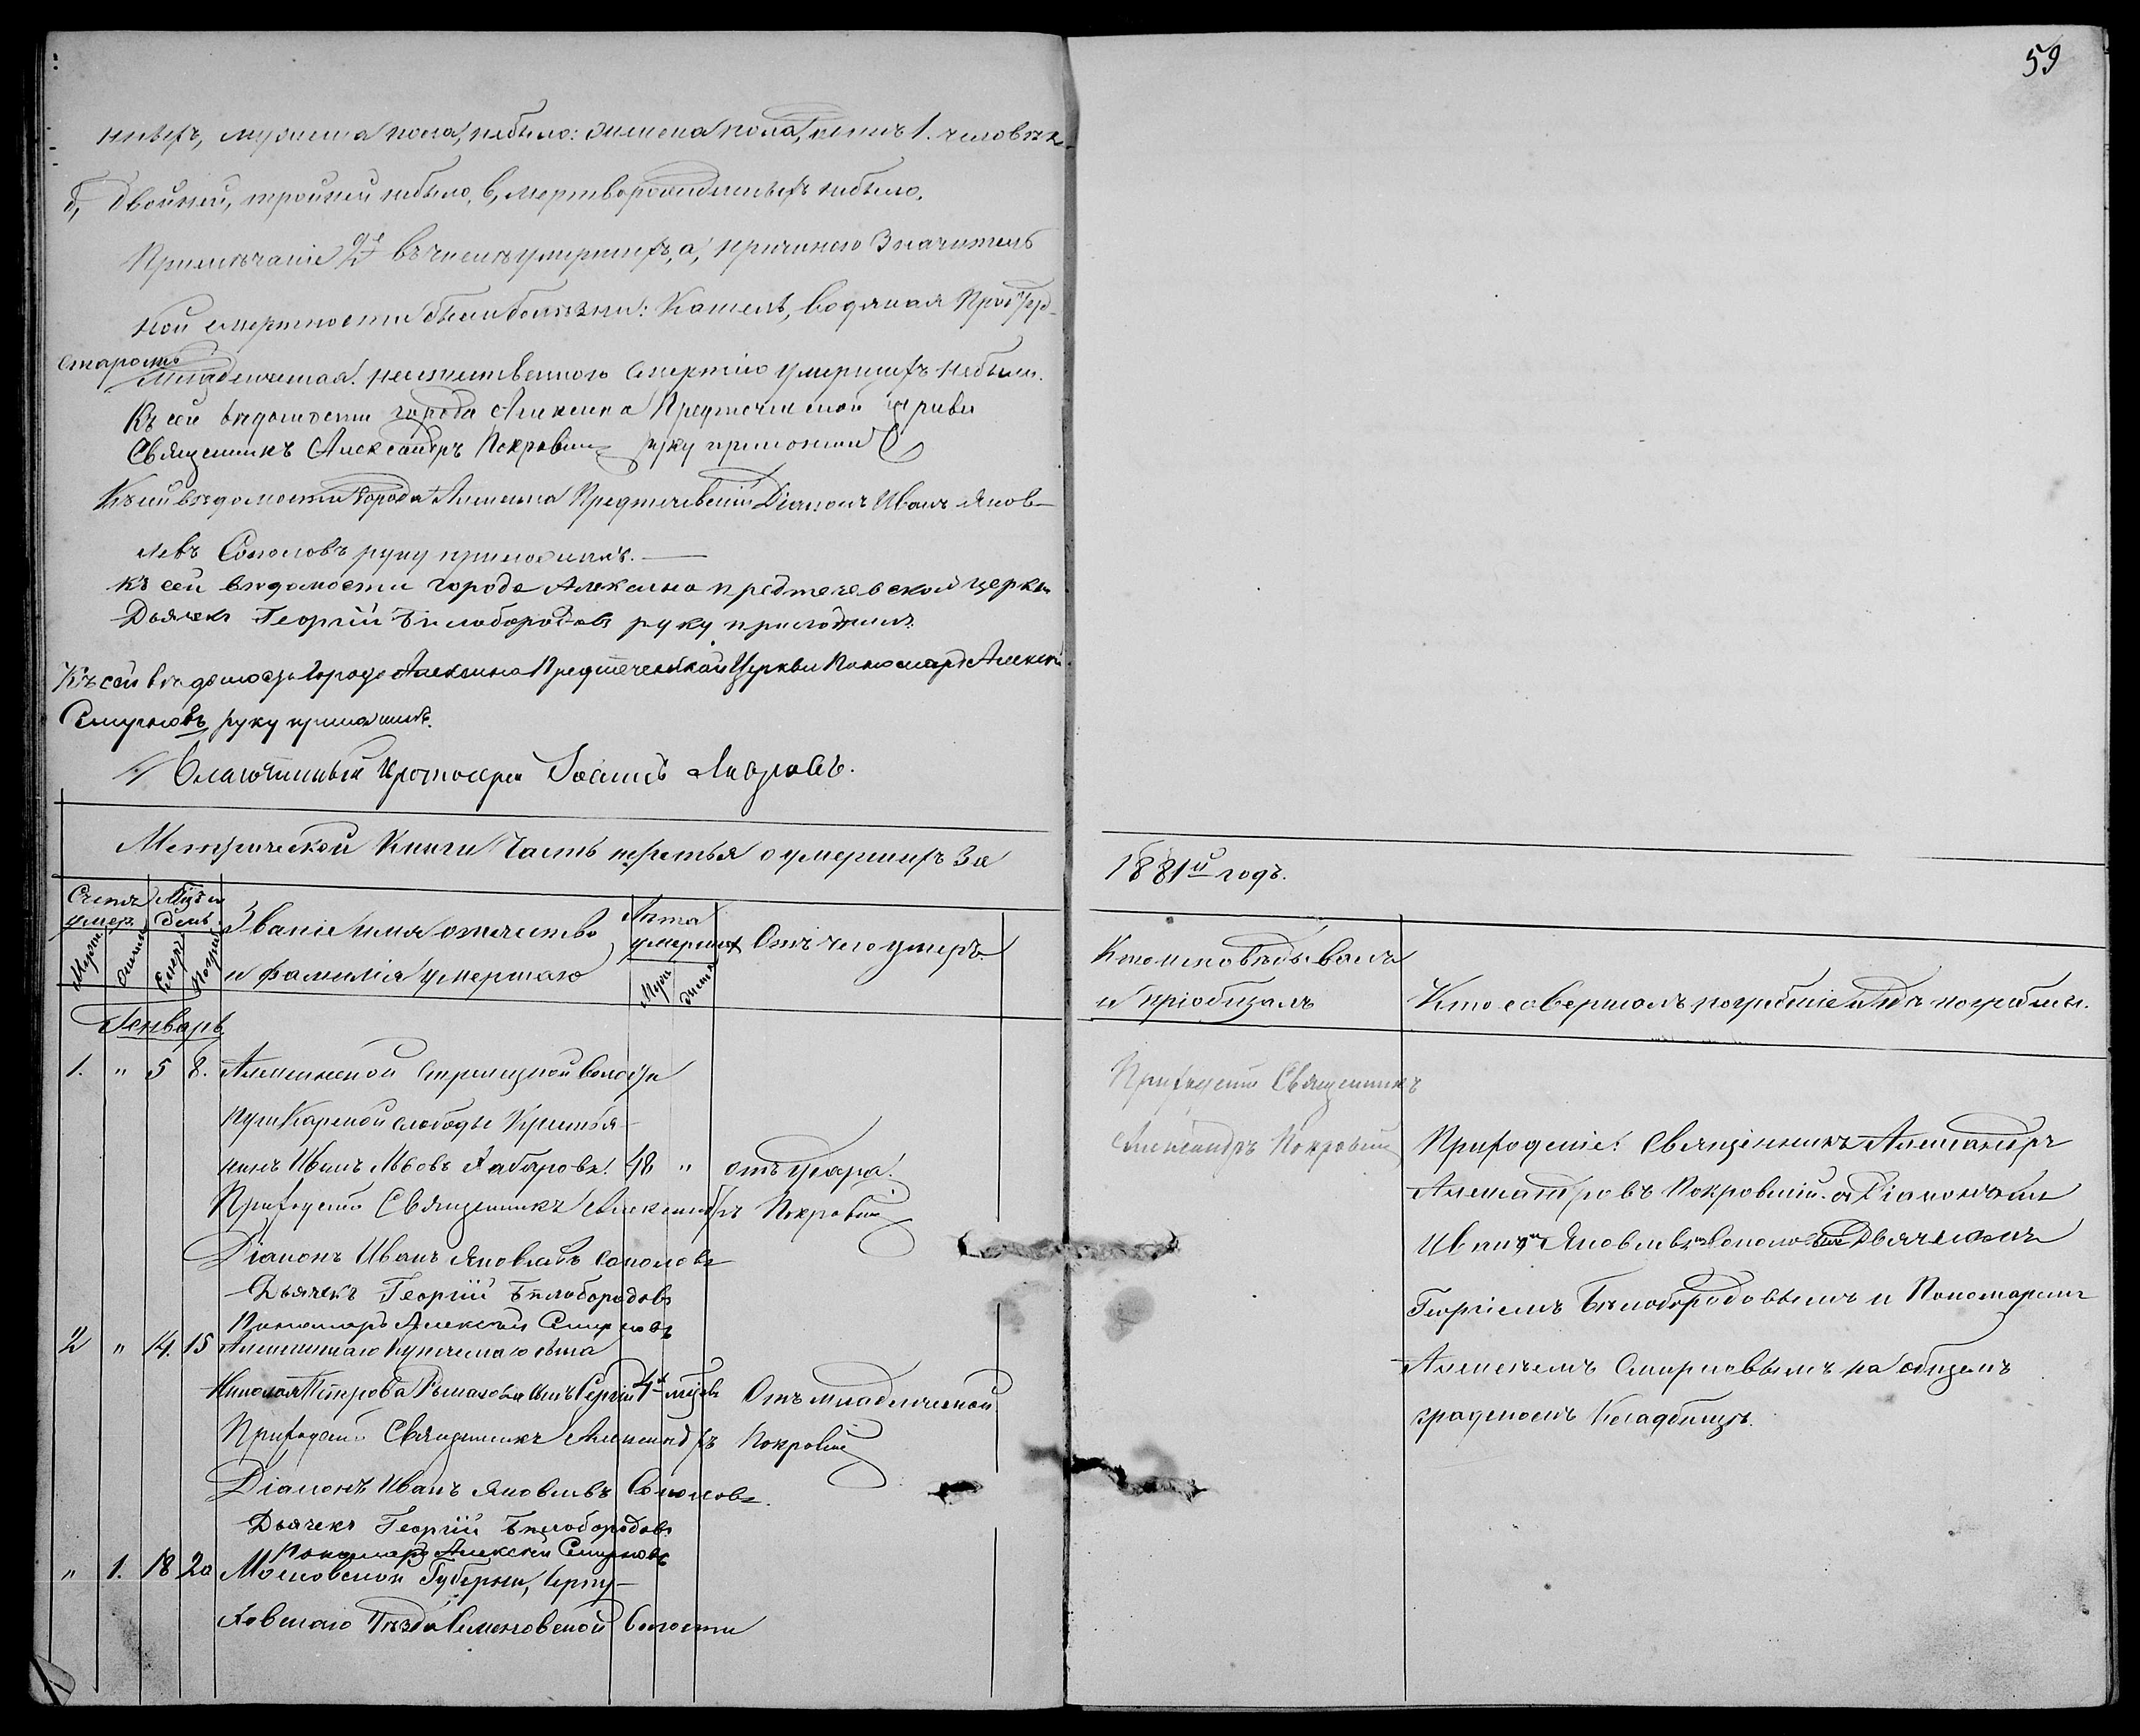 59
ныхъ, мужеска пола, небыло: женска пола, 1. человѣкъ
б, двойней, тройней небыло, в, мертворожденныхъ небыло.
Примѣчаніе въ числѣ умершихъ, а, причиною Значитель
ной смертности были болѣзни: Кашель, водяная
старость
Младенческая. неестественною смертію умершихъ небыло.
Къ сей вѣдомости города Алексина Предтеченской церкви
Священникъ Александръ Покровскій руку приложилъ
Къ сей вѣдомости города Алексина Предтечевскій Діаконъ Иванъ Яков-
левъ Соколовъ руку приложилъ.
къ сей вѣдомости города Алексина предтечевской церкви
Дьячекъ Георгій Бѣлобородовъ руку приложилъ.
Къ сей вѣдомости города Алексина Предтеченской Церкви Пономарь Алексѣй
Смирновъ руку приложилъ.
Благочинный Протоіерей Іоаннъ Лавровъ.
Метрической Книги Часть третья о умершихъ За
1881й годъ.
Счетъ умер.
Мѣс. и день
Званіе имя отчество
и фамилія умершаго
Лѣта умершихъ
Отъ чего умеръ
Кто исповѣдывалъ
и пріобщалъ
Кто совершалъ погребеніе и гдѣ погребены.
Генварь
1. " 5 8. Алексинской Стрѣлецкой волости
Пушкарской слободы Крестья-
нинъ Иванъ Львовъ Хабаровъ. 48 " отъ удара.
Приходскій Священникъ Александръ Покровскій
Діаконъ Иванъ Яковлевъ Соколовъ
Дьячекъ Георгій Бѣлобородовъ
Пономарь Алексѣй Смирновъ
2 " 14. 15 Алексинскаго Купеческаго сына
Николая Петрова сынъ Сергій 4 мѣсяц. Отъ младенческой.
Приходскій Священникъ Александръ Покровскій
Діаконъ Иванъ Яковлевъ Соколовъ.
Дьячекъ Георгій Бѣлобородовъ
Пономарь Алексѣй Смирновъ
" 1. 18 20 Московской Губерніи, Серпу-
ховскаго Уѣзда Семеновской волости
Приходскій Священникъ
Александръ Покровскій
Приходскіе: Священникъ Александръ
Александровъ Покровскій. съ Діакономъ
Иваномъ Яковлевымъ Соколовымъ Дьячекомъ
Георгіемъ Бѣлобородовымъ и Пономаремъ
Алексѣемъ Смирновымъ на общемъ
градскомъ Кладбищѣ.